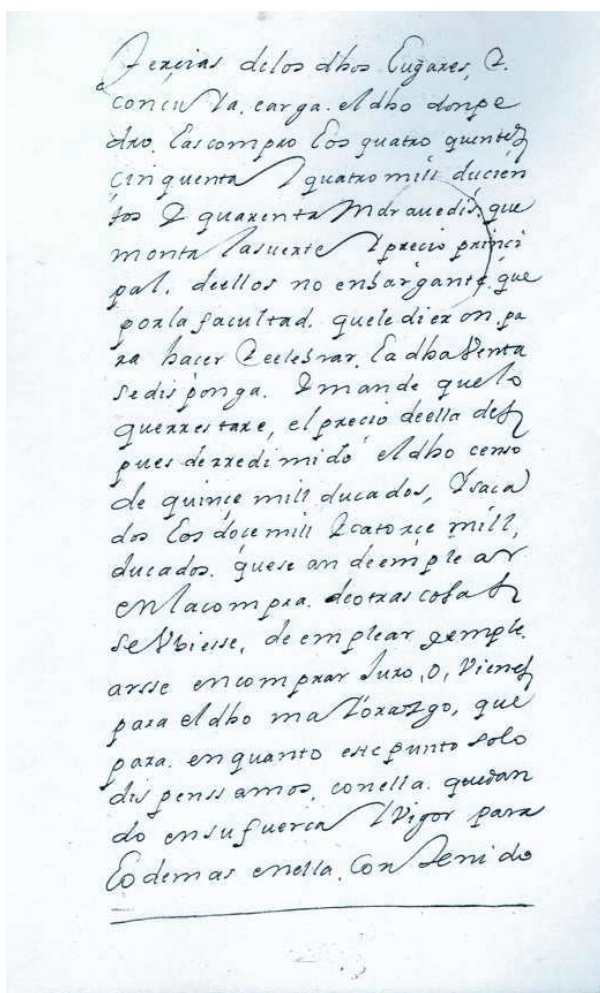 Tercias delos dhos Lugares, Y.
conesta. carga. el dho donpe
dro. Las compro Los quatro quentos
cinquenta Y quatro mill ducien
tos Y quarenta Mdravedis. que
monta lasuerte Y precio princi
pal. deellos no enbargante. que
porla facultad. quele dieron. pa
ra hacer Y celebrar. La dha Venta
se dis ponga. Y mande que lo
querrestare, el precio deella des
pues derredimido el dho censo
de quince mill ducados, Y saca
dos Los doce mill Y catorce mill,
ducados. quese an deemplear
enlacompra. deotras cosas
seVbiesse, de emplear Yemple.
arsse encomprar Juro, O, Vienes
para eldho maYorazgo, que
para. enquanto este punto solo
dis penssamos, conella. quedan
do ensufuerca Y Vigor para
Lo demas enella. Contenido